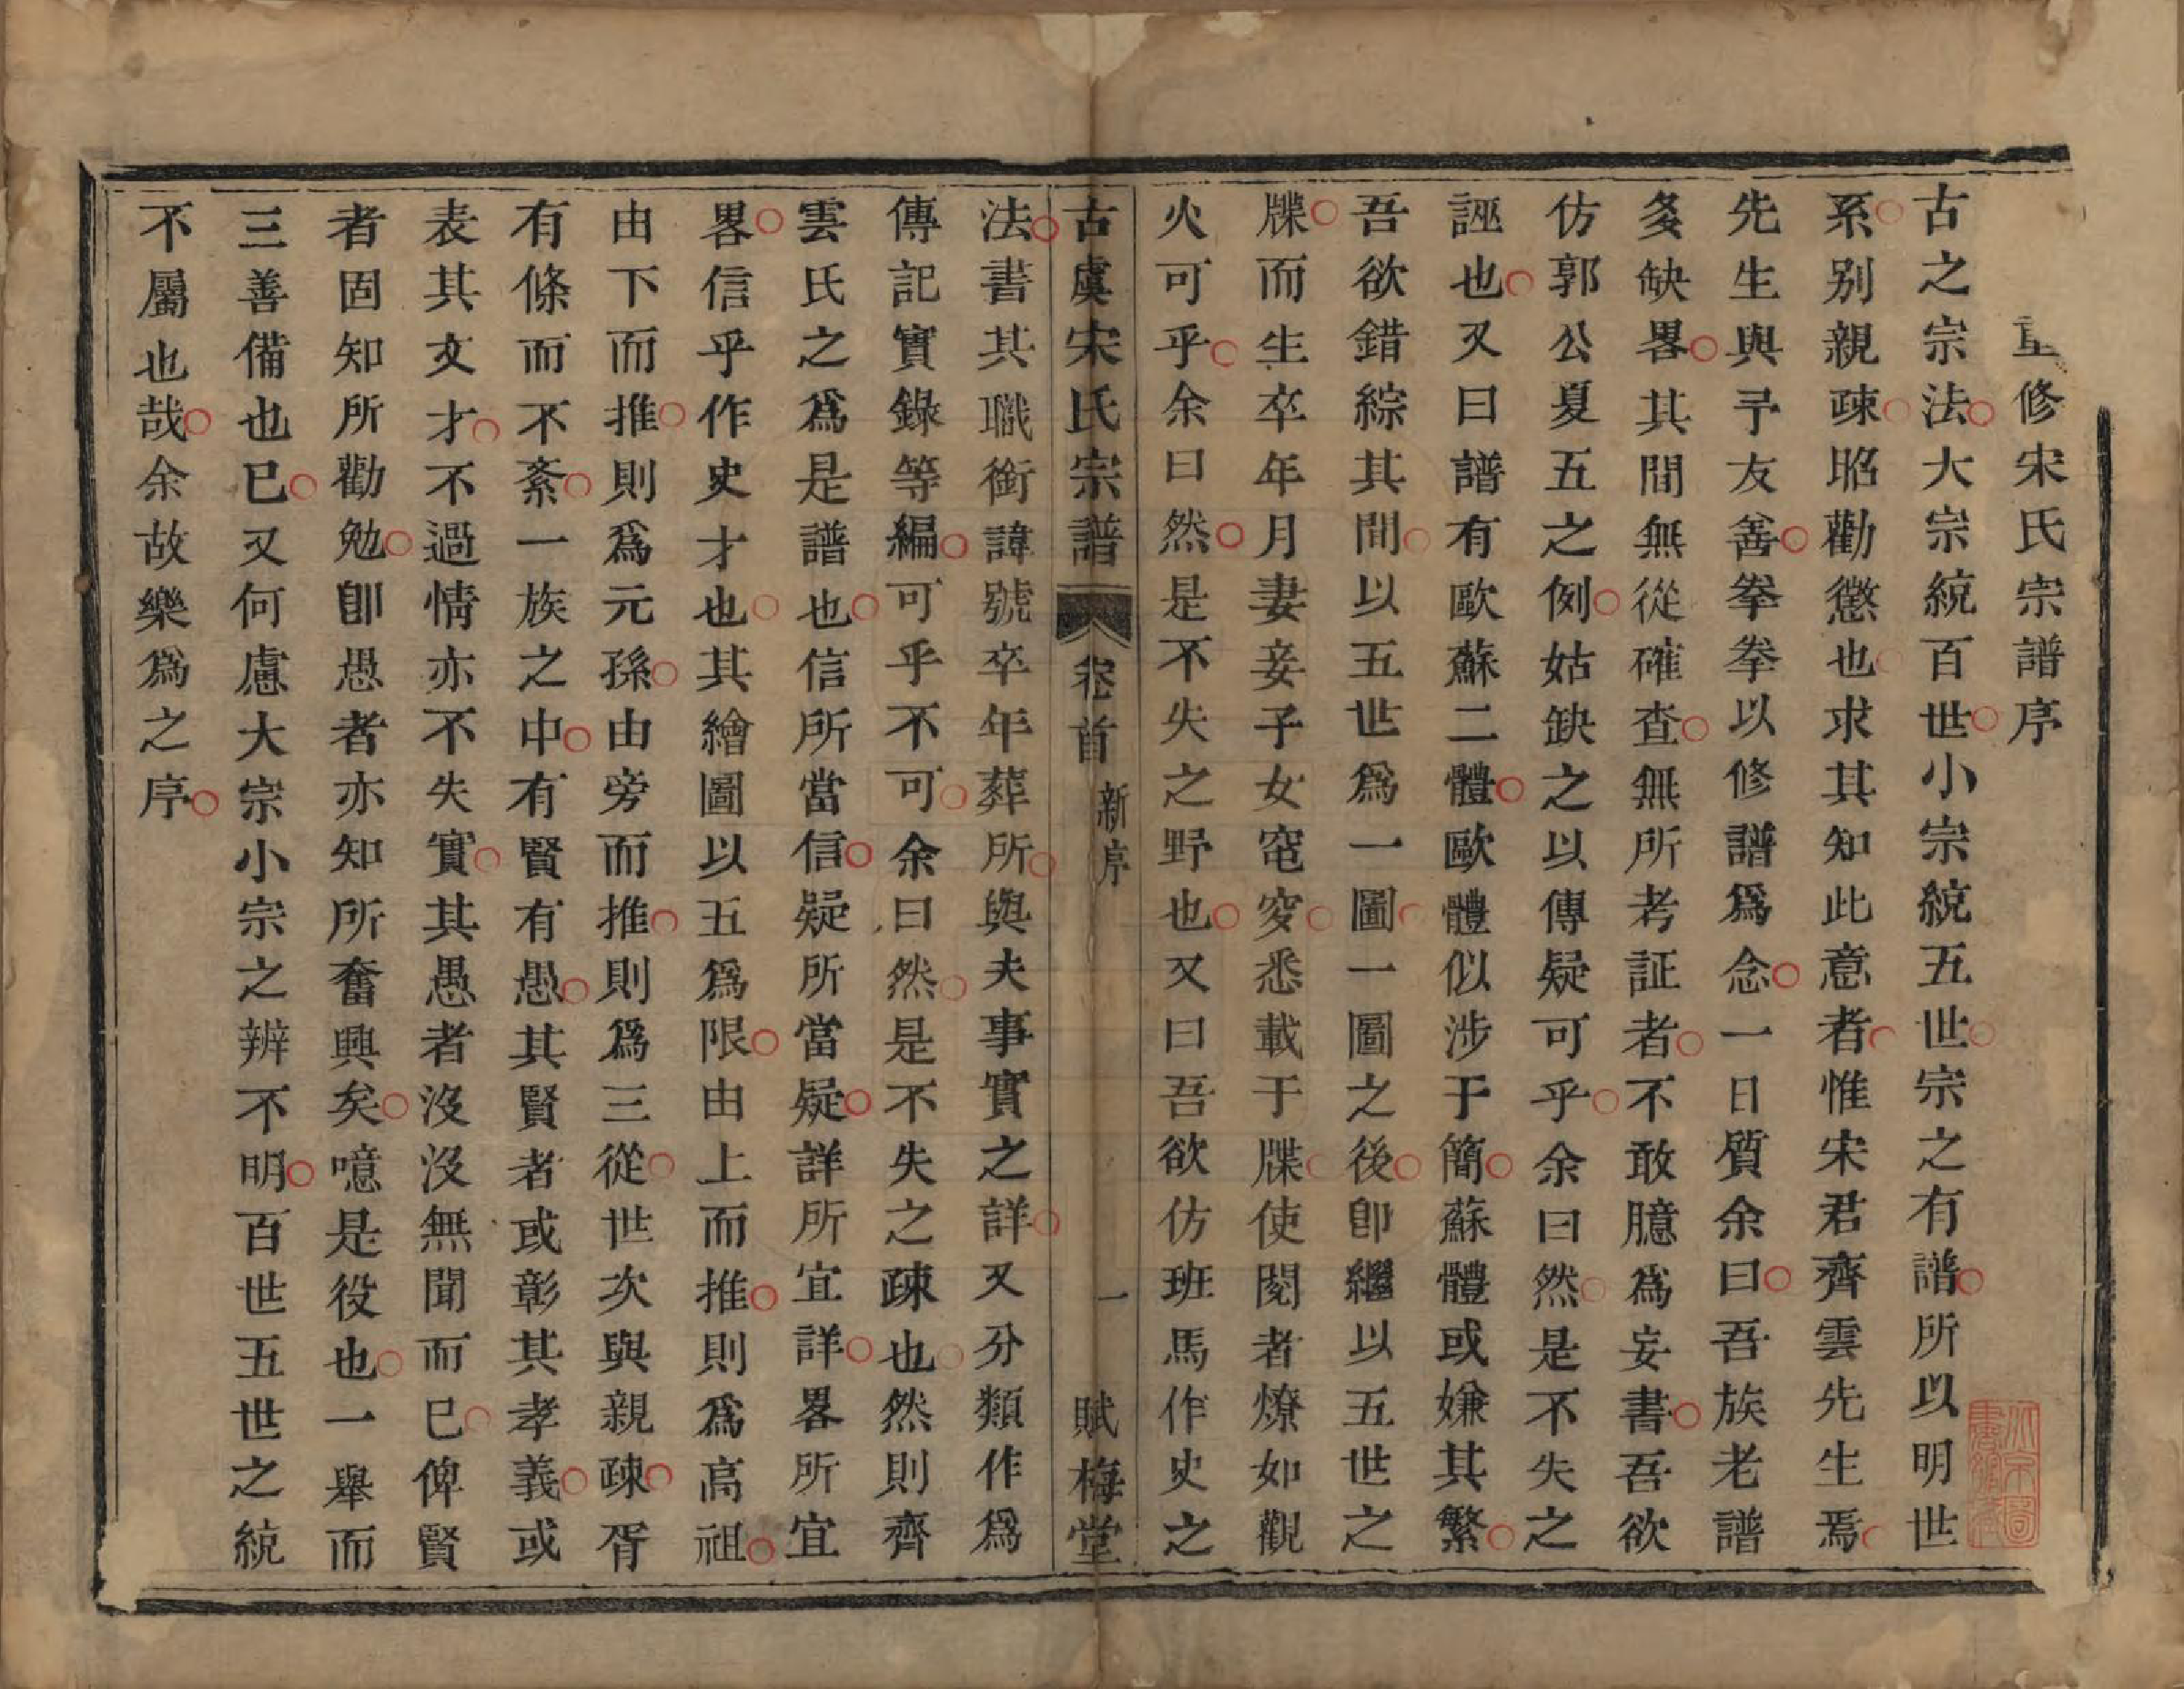 重修宋氏宗譜序
古之宗法大宗統百世小宗統五世宗之有譜所以明世
系别親疎昭勸懲也求其知此意者惟宋君齊雲先生焉
先生與予友善拳拳以修譜爲念一日質余曰吾族老譜
多缺畧其間無從確查無所考証者不敢臆爲妄書吾欲
仿郭公夏五之例姑缺之以傳疑可乎余曰然是不失之
誣也又曰譜有歐蘇二體歐體似涉于簡蘇體或嫌其繁
吾欲錯綜其間以五世爲一圖一圖之後卽繼以五世之
牒而生卒年月妻妾子女窀穸悉載于牒使閱者燎如觀
火可乎余曰然是不失之野也又曰吾欲仿班馬作史之
古虞宋氏宗譜 卷首 新序 一 賦梅堂
法書其職銜諱號卒年葬所與夫事實之詳又分類作爲
傳記實錄等編可乎不可余曰然是不失之疎也然則齊
雲氏之爲是譜也信所當信疑所當疑詳所宜詳畧所宜
畧信乎作史才也其繪圖以五爲限由上而推則爲高祖
由下而推則爲元孫由旁而推則爲三從世次與親疎胥
有條而不紊一族之中有賢有愚其賢者或彰其孝義或
表其文才不過情亦不失實其愚者沒沒無聞而已俾賢
者固知所勸勉卽愚者亦知所奮興矣噫是役也一舉而
三善備也已又何慮大宗小宗之辨不明百世五世之統
不屬也哉余故樂爲之序